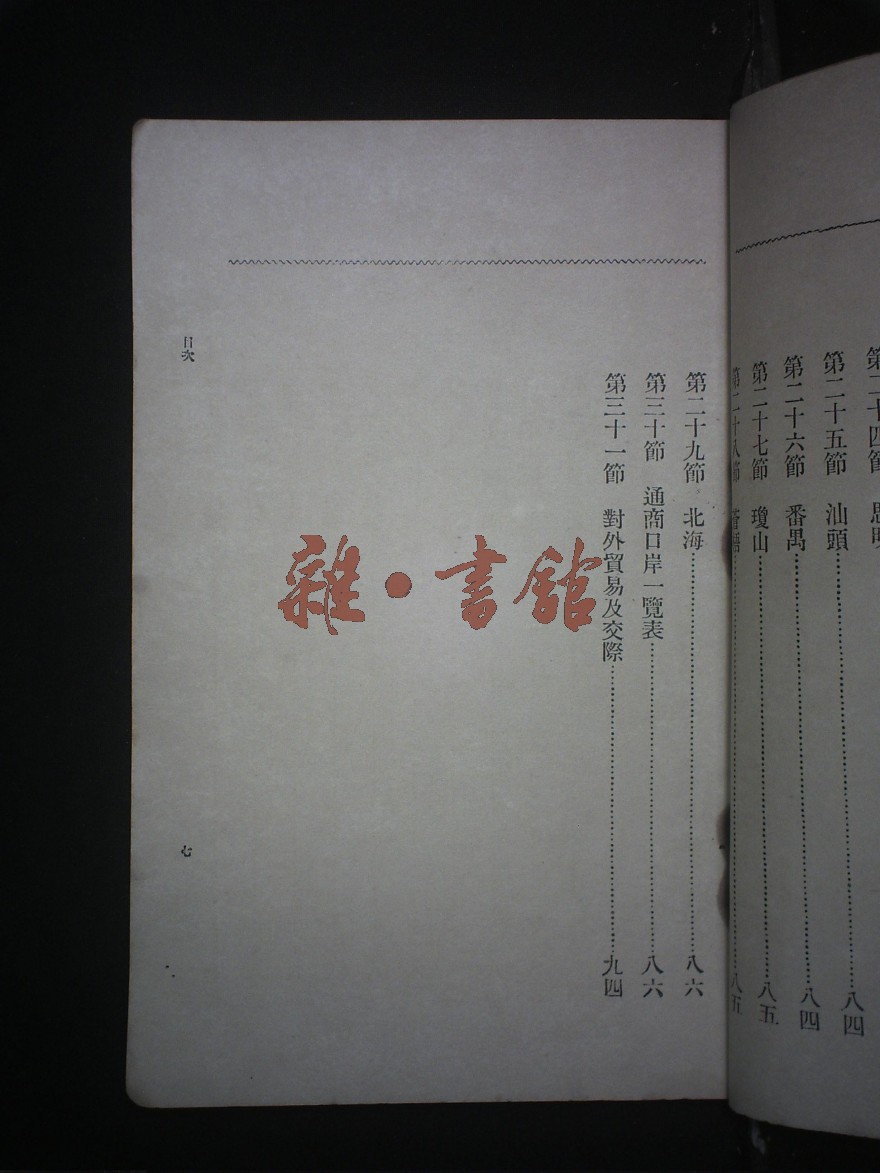 第二十四節　思明
第二十五節　汕頭……八四
第二十六節　番禺……八四
第二十七節　瓊山……八五
第二十八節……八五
第二十九節　北海……八六
第三十節　通商口岸一覽表……八六
第三十一節　對外貿易及交際……九四
目次
七
雜·書館